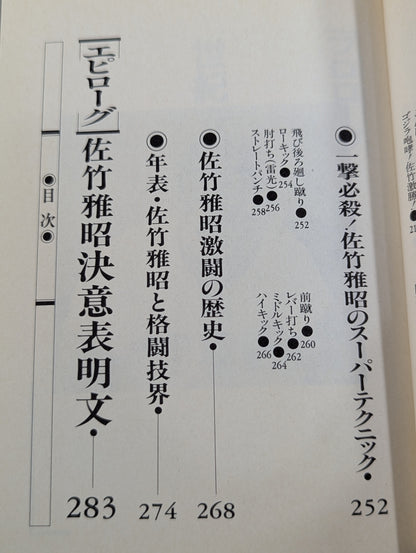 ゴジラ咆哮!佐竹激勝!
●一撃必殺!佐竹雅昭のスーパーテクニック・252
飛び後ろ廻し蹴り●252
ローキック●254
肘打ち(雷光)●256
ストレートパンチ●258
前蹴り●260
レバー打ち●262
ミドルキック●264
ハイキック●266
●佐竹雅昭激闘の歴史・268
●年表・佐竹雅昭と格闘技界・274
[エピローグ]佐竹雅昭決意表明文・283
●目次●